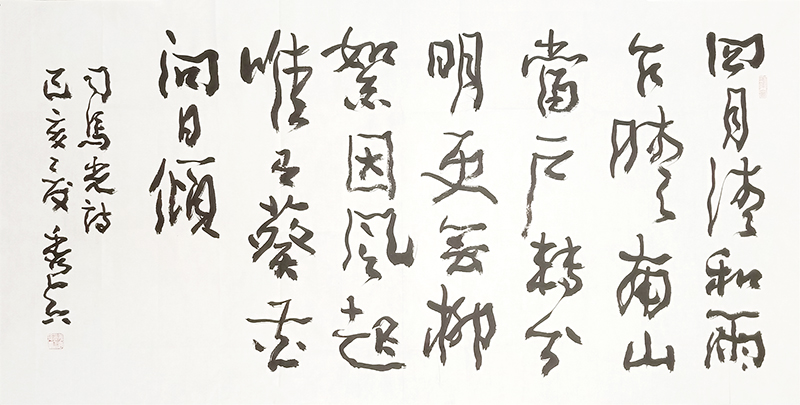 四月清和雨
乍晴南山
當戶轉分
明更無柳
絮因風起
唯有葵花
向日傾
司馬光詩
己亥之